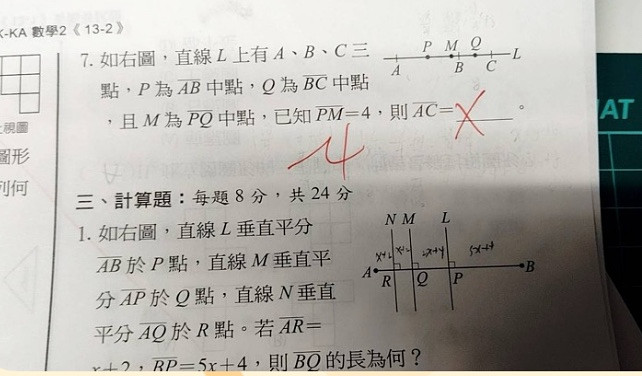 K-KA 數學2《13-2》
7. 如右圖,直線 L 上有 A、B、C 三
點,P 為 AB 中點,Q 為 BC 中點
,且 M 為 PQ 中點,已知 PM=4,則 AC=______。
P M Q
A B C L
X
4
上視圖
圖形
列何
三、計算題:每題 8 分,共 24 分
1. 如右圖,直線 L 垂直平分
AB 於 P 點,直線 M 垂直平
分 AP 於 Q 點,直線 N 垂直
平分 AQ 於 R 點。若 AR=
x+2,BP=5x+4,則 BQ 的長為何?
N M L
x+2 5x+4
A R Q P B
AT